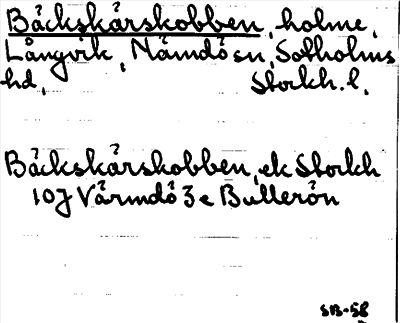 Bäckskärskobben, holme,
Långvik, Nämdö sn, Sotholms
hd, Stockh. l.
Bäckskärskobben, ek Stockh
10J Värmdö 3e Bullerön
SB-58